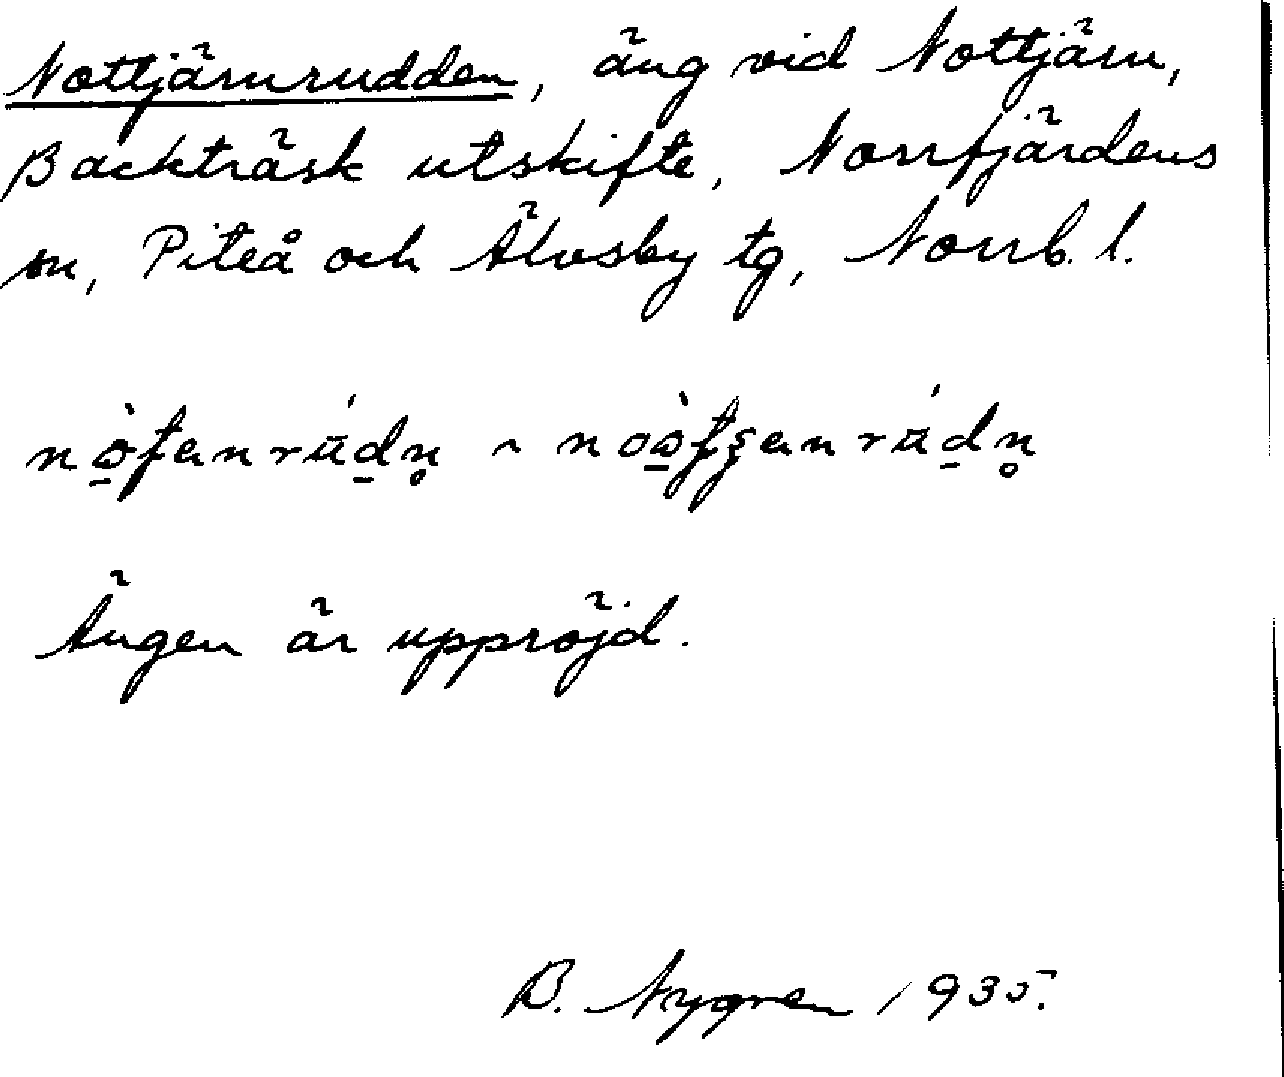 Nottjärnrudden, äng vid Nottjärn,
Backträsk utskifte, Norrfjärdens
sn, Piteå och Älvsby tg, Norrb. l.
Ängen är uppröjd.
B. Nygren 1935.